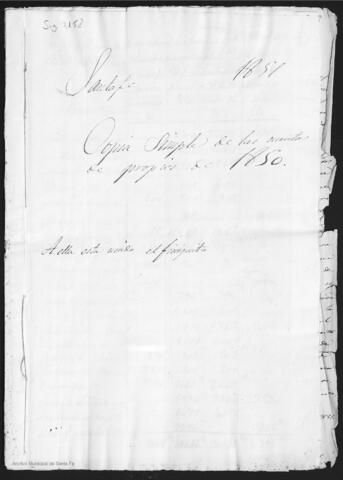 Sig. 152
Santafe 1851
Copia Simple de las cuentas
de propios de 1850.
A ella esta unido el finiquito
Archivo Municipal de Santa Fe